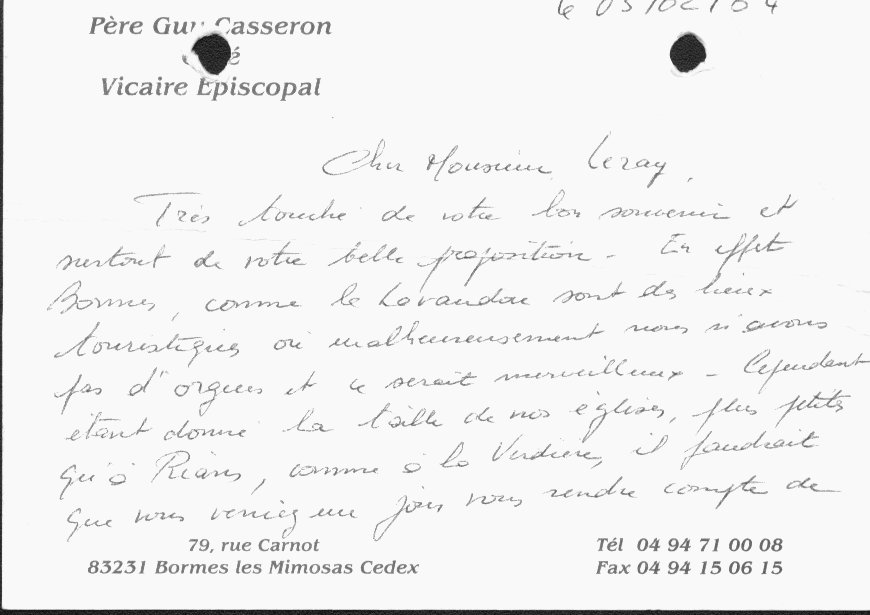 le 03/02/04
Père Guy Casseron
Vicaire Episcopal
Cher Monsieur Leray,
Très touché de votre bon souvenir et
surtout de votre belle proposition - En effet
Bormes, comme le Lavandou sont des lieux
touristiques où malheureusement nous n'avons
pas d'orgues et ce serait merveilleux - Cependant
étant donné la taille de nos églises, plus petites
qu'à Rians, comme à la Verdière, il faudrait
que vous veniez un jour vous rendre compte de
79, rue Carnot
83231 Bormes les Mimosas Cedex
Tél 04 94 71 00 08
Fax 04 94 15 06 15